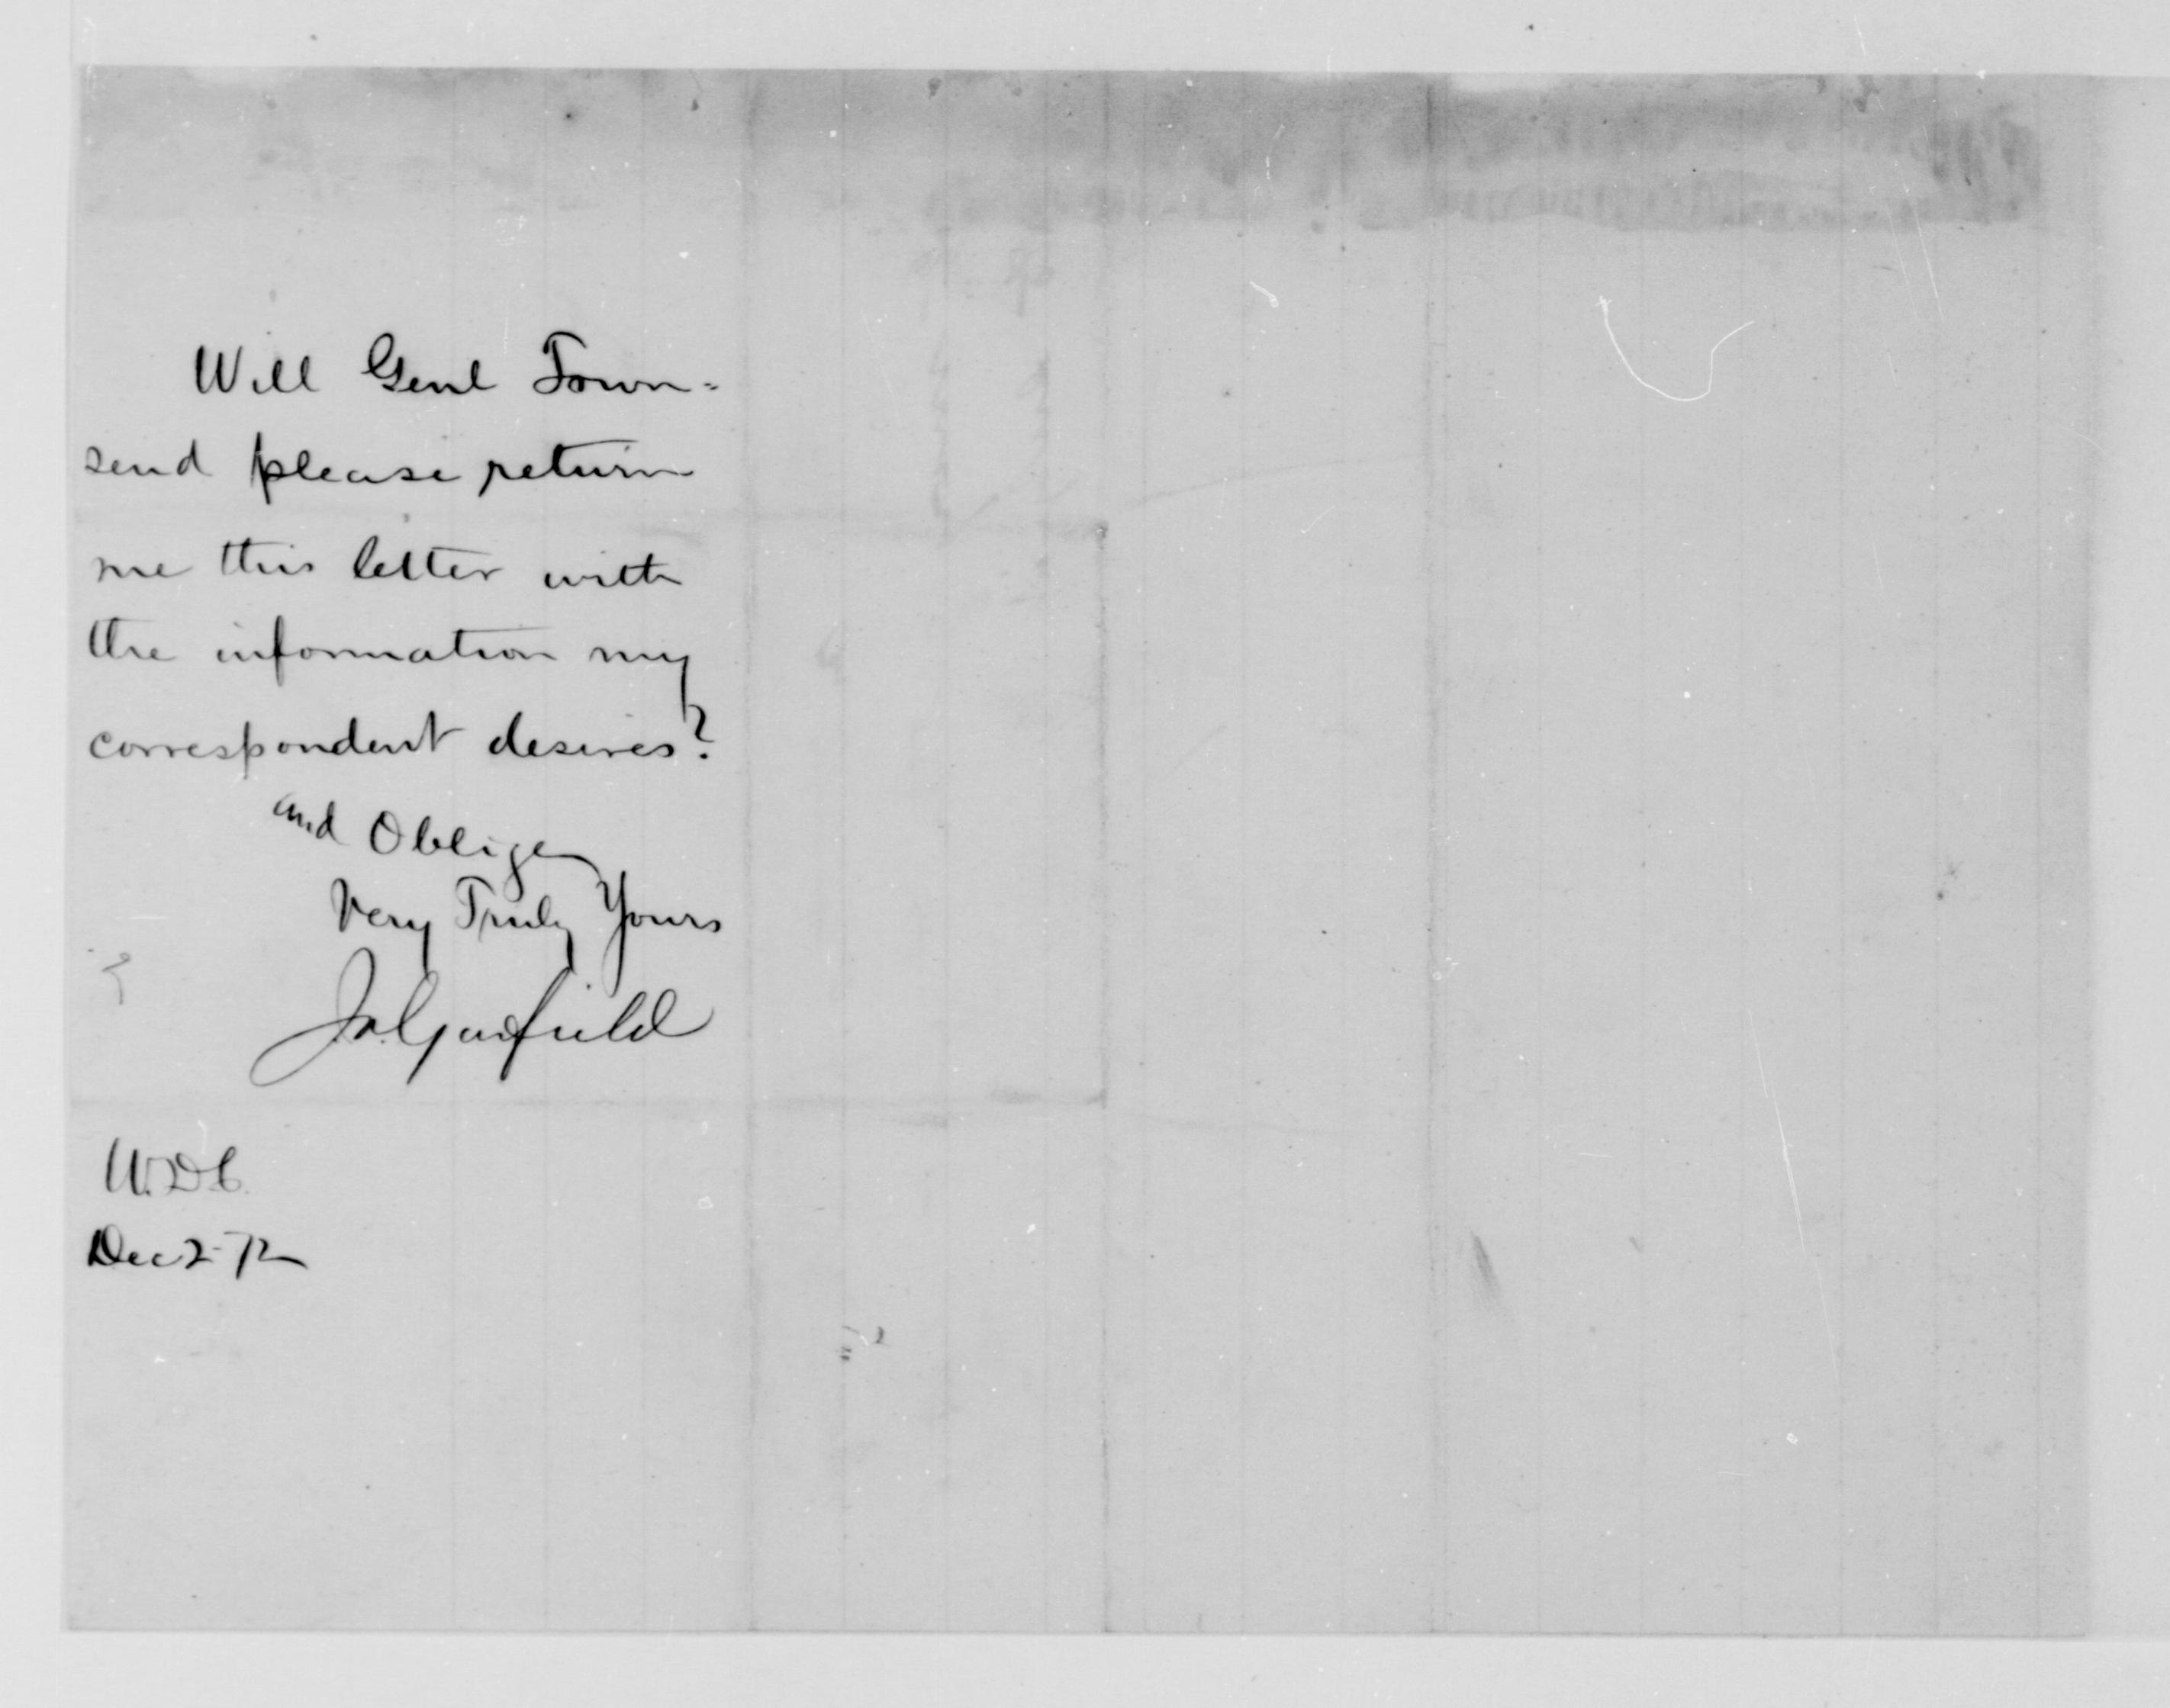 Will Genl Town=
send please return
me this letter with
the information my
correspondent desires?
and Oblige
Very Truly Yours
J.A. Garfield
W.D.C.
Dec 2-72